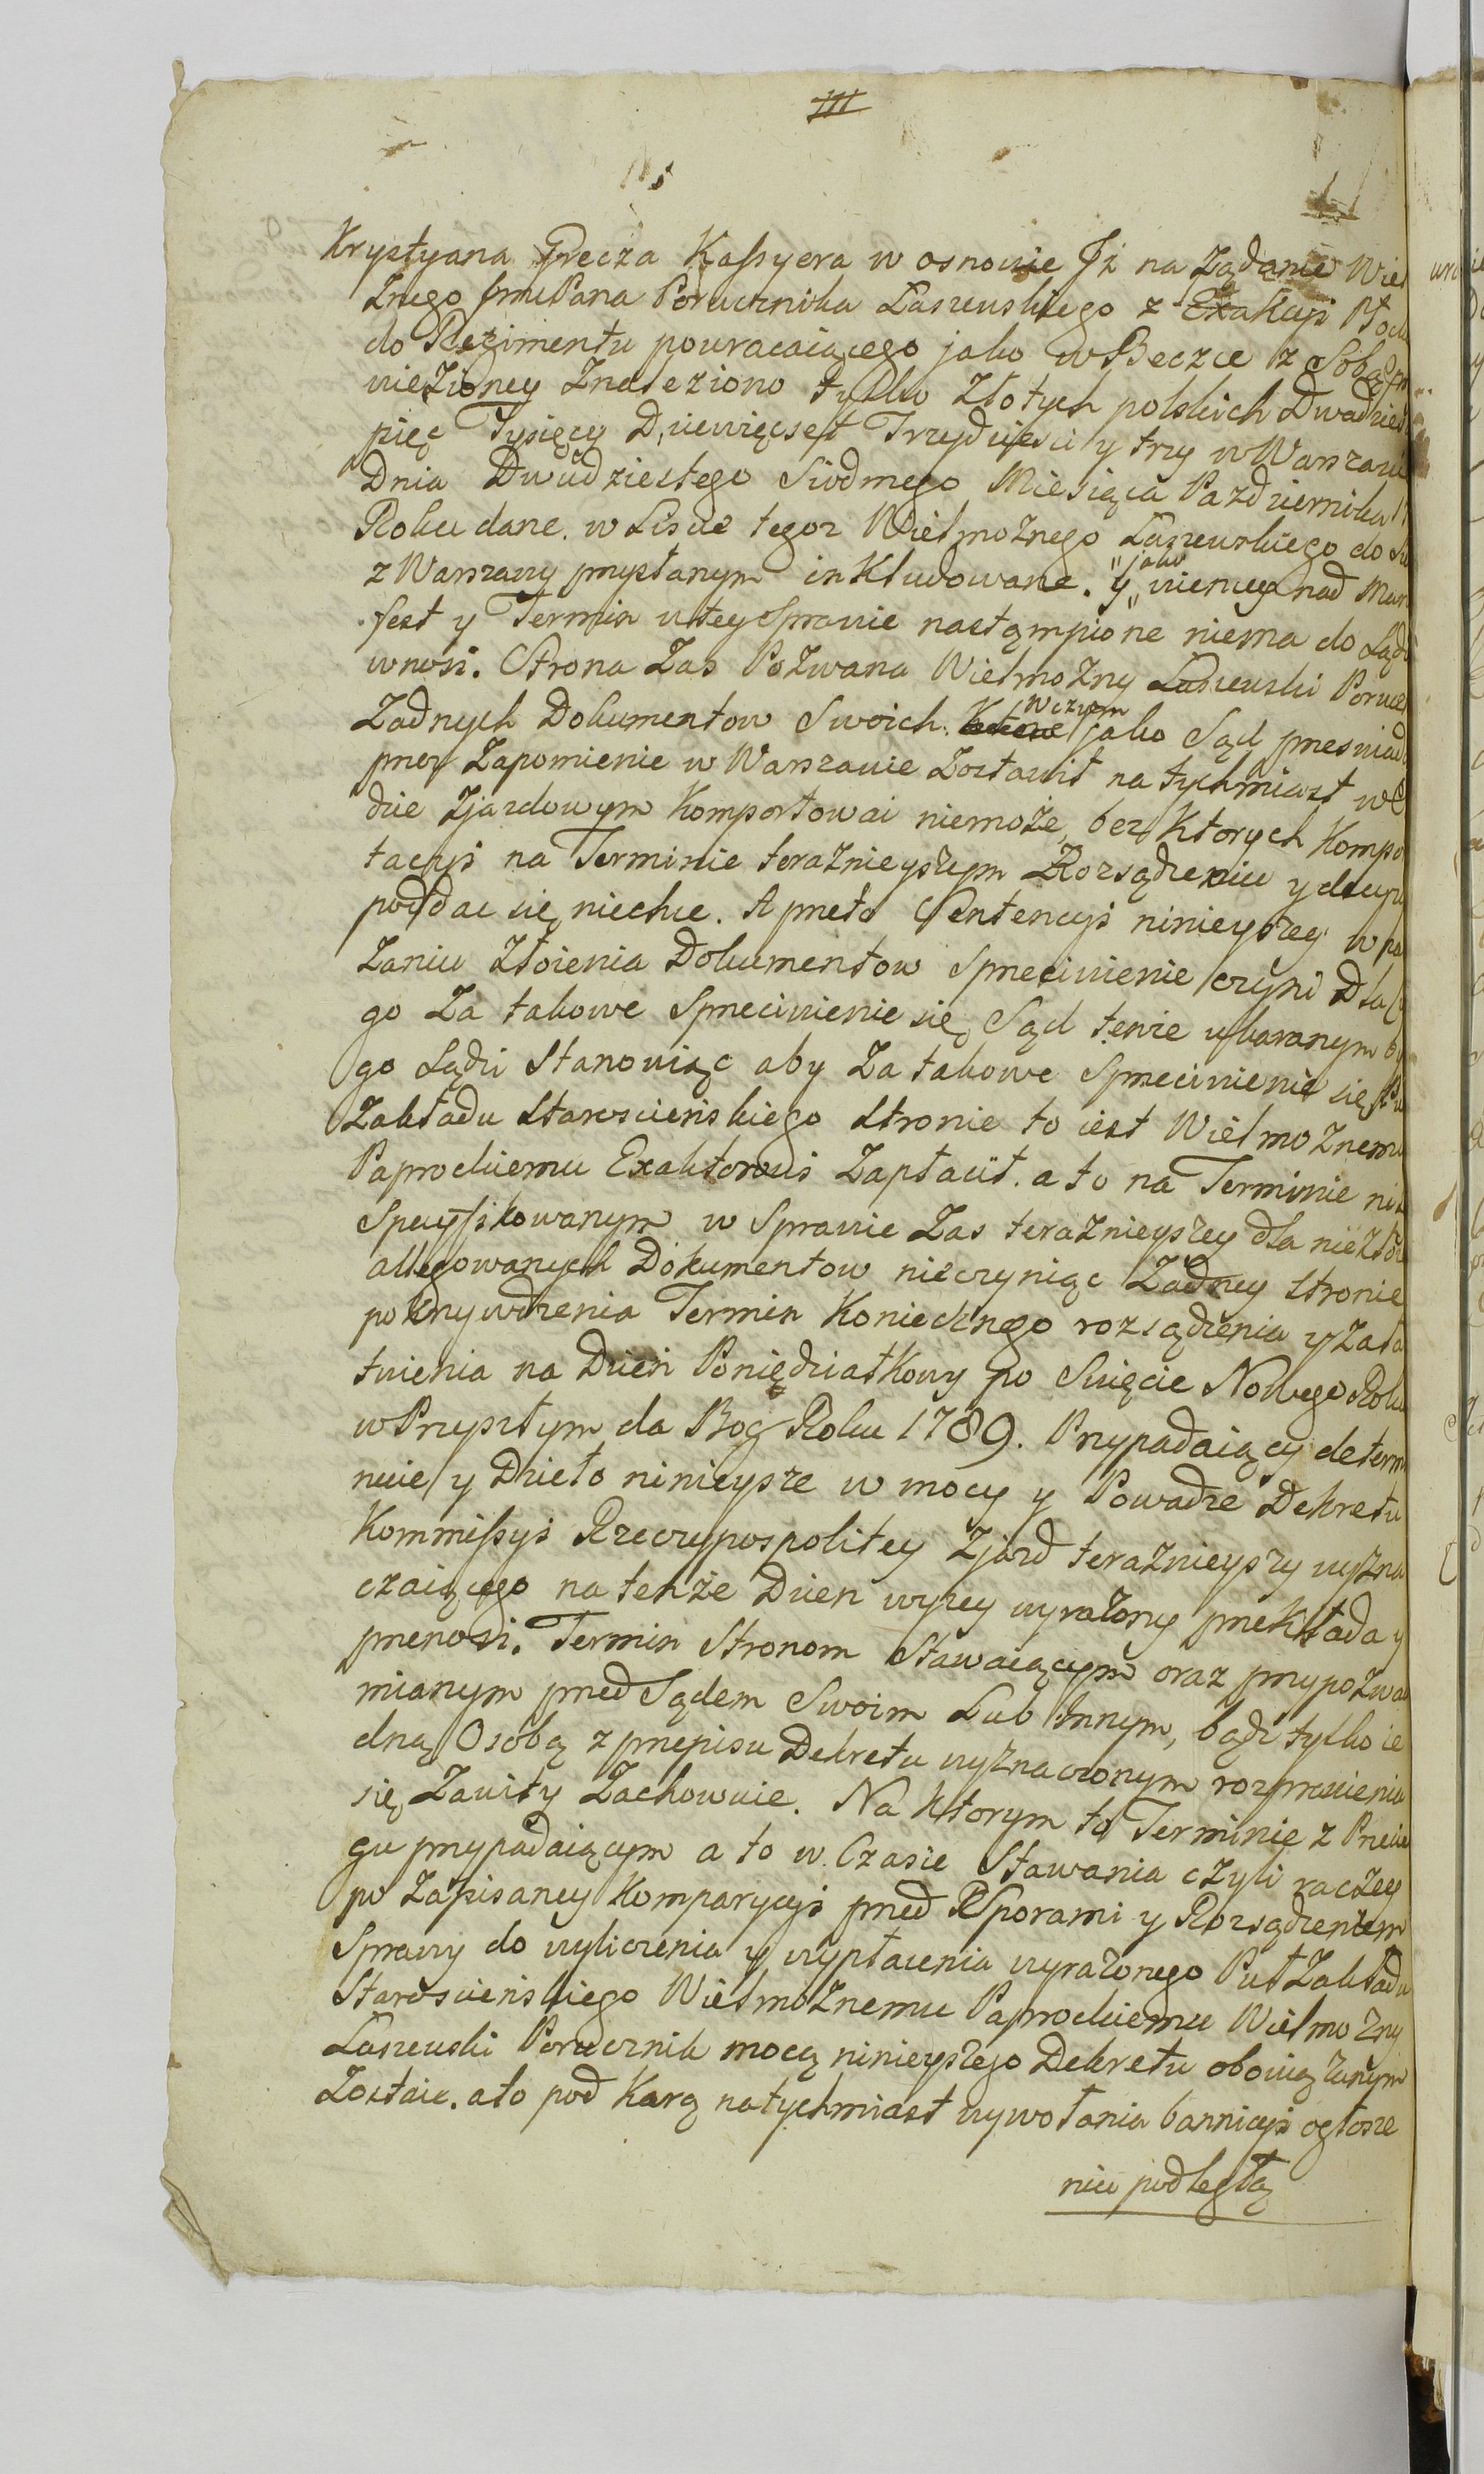 III
Krystyana Grecza Kassyera w osnowie Jż na Żądanie Wiel
żnego JmcPana Porucznika Laszewskiego z Exakcyi Płock
do Regimentu powracaiącego jako w Beczce z Sobą
wieżioney Znaleziono tylko Złotych polskich Dwadzies
pięc Tysięcy Dziewięcset Trzydzieści y trzy w Warszawie
Dnia Dwudziestego Siodmego Miesiąca Pazdziernika
Roku dane. w Liście tegoz Wielmożnego Laszewskiego do
z Warszawy przysłanym inkludowane. y „jako" więcey nad Mani
fest y Termin w tey Sprawie nastąmpione niema do Sądu
wnosi. Strona Zas Pożwana Wielmożny Laszewski Poruc
Żadnych Dokumentow Swoich. wczym jako Sąd przeswiad
przez Zapomienie w Warszawie Zostawił natychmiast w
dzie Zjazdowym Komportowai niemoże, bez Ktorych Kompo
tacyi na Terminie terażnieyszym Rozsądzeniu y decyzy
poddac się niechce. A przeto Sentencyi ninieyszey w
zaniu Złożenia Dokumentow Sprzeciwienie czyni Dla
go Za takowe Sprzeciwienie się, Sąd tenże ukaranym
go Sądzi Stanowiąc aby Za takowe Sprzeciwienie się
Zakładu Starościeńskiego Stronie to iest Wielmożnemu
Paprockiemu Exaktorowi Zapłacił. a to na Terminie niż
Specyfikowanym w Sprawie Zas terażnieyszey dla niezłożo
allegowanych Dokumentow nieczyniąc Żadney Stronie
pokrzywdzenia Termin Koniecznego rozsądzenia y Zała
twienia na Dzień Poniędziałkowy po Swięcie Nowego Roku
w Przyszłym da Bog Roku 1789. Przypadaiący determi
nuie y Dzieło ninieysze w mocy y Powadze Dekretu
Kommissyi Rzeczypospolitey Zjazd terażnieyszy wyzna
czaiącego na tenże Dzien wyżey wyrażony przekłada y
przenosi. Termin Stronom Stawaiącym oraz przypozwa
mianym przed Sądem Swoim Lub Innym, bądz tylko ie
dną Osobą z przepisu Dekretu wyznaczonym rozprawienia
się Zawity Zachowuie. Na Ktorym to Terminie z
gu przypadaiącym a to w Czasie Stawania czyli raczey
po Zapisaney Komparycyi przed Sporami y Rozsądzeniem
Sprawy do wyliczenia y wypłacenia wyrażonego Puł Zakładu
Starościeńskiego Wielmożnemu Paprockiemu Wielmożny
Laszewski Porucznik mocą ninieyszego Dekretu obowiązanym
Zostaie. a to pod Karą natychmiast wywołania bannicyi ogłosze
niu podległą